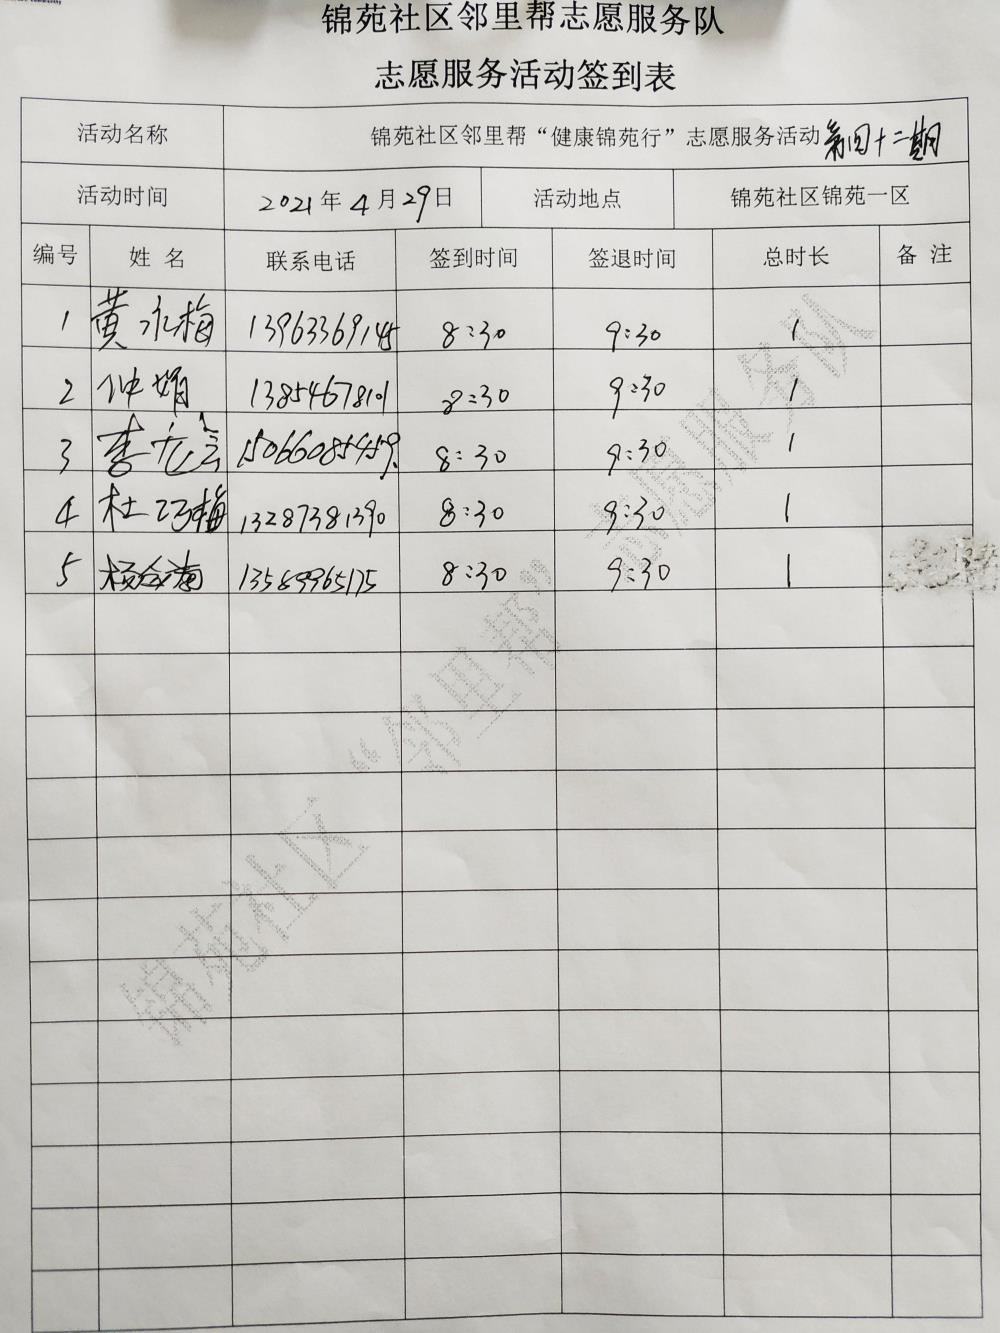 锦苑社区邻里帮志愿服务队
志愿服务活动签到表
活动名称 锦苑社区邻里帮“健康锦苑行”志愿服务活动第四十二期
活动时间 2021年4月29日 活动地点 锦苑社区锦苑一区
编号 姓名 联系电话 签到时间 签退时间 总时长 备注
1 黄永梅 13963369145 8:30 9:30 1
2 仲娟 13854678101 8:30 9:30 1
3 李龙会 15066085459 8:30 9:30 1
4 杜巧梅 13287381390 8:30 9:30 1
5 13589965175 8:30 9:30 1
锦苑社区“邻里帮”志愿服务队